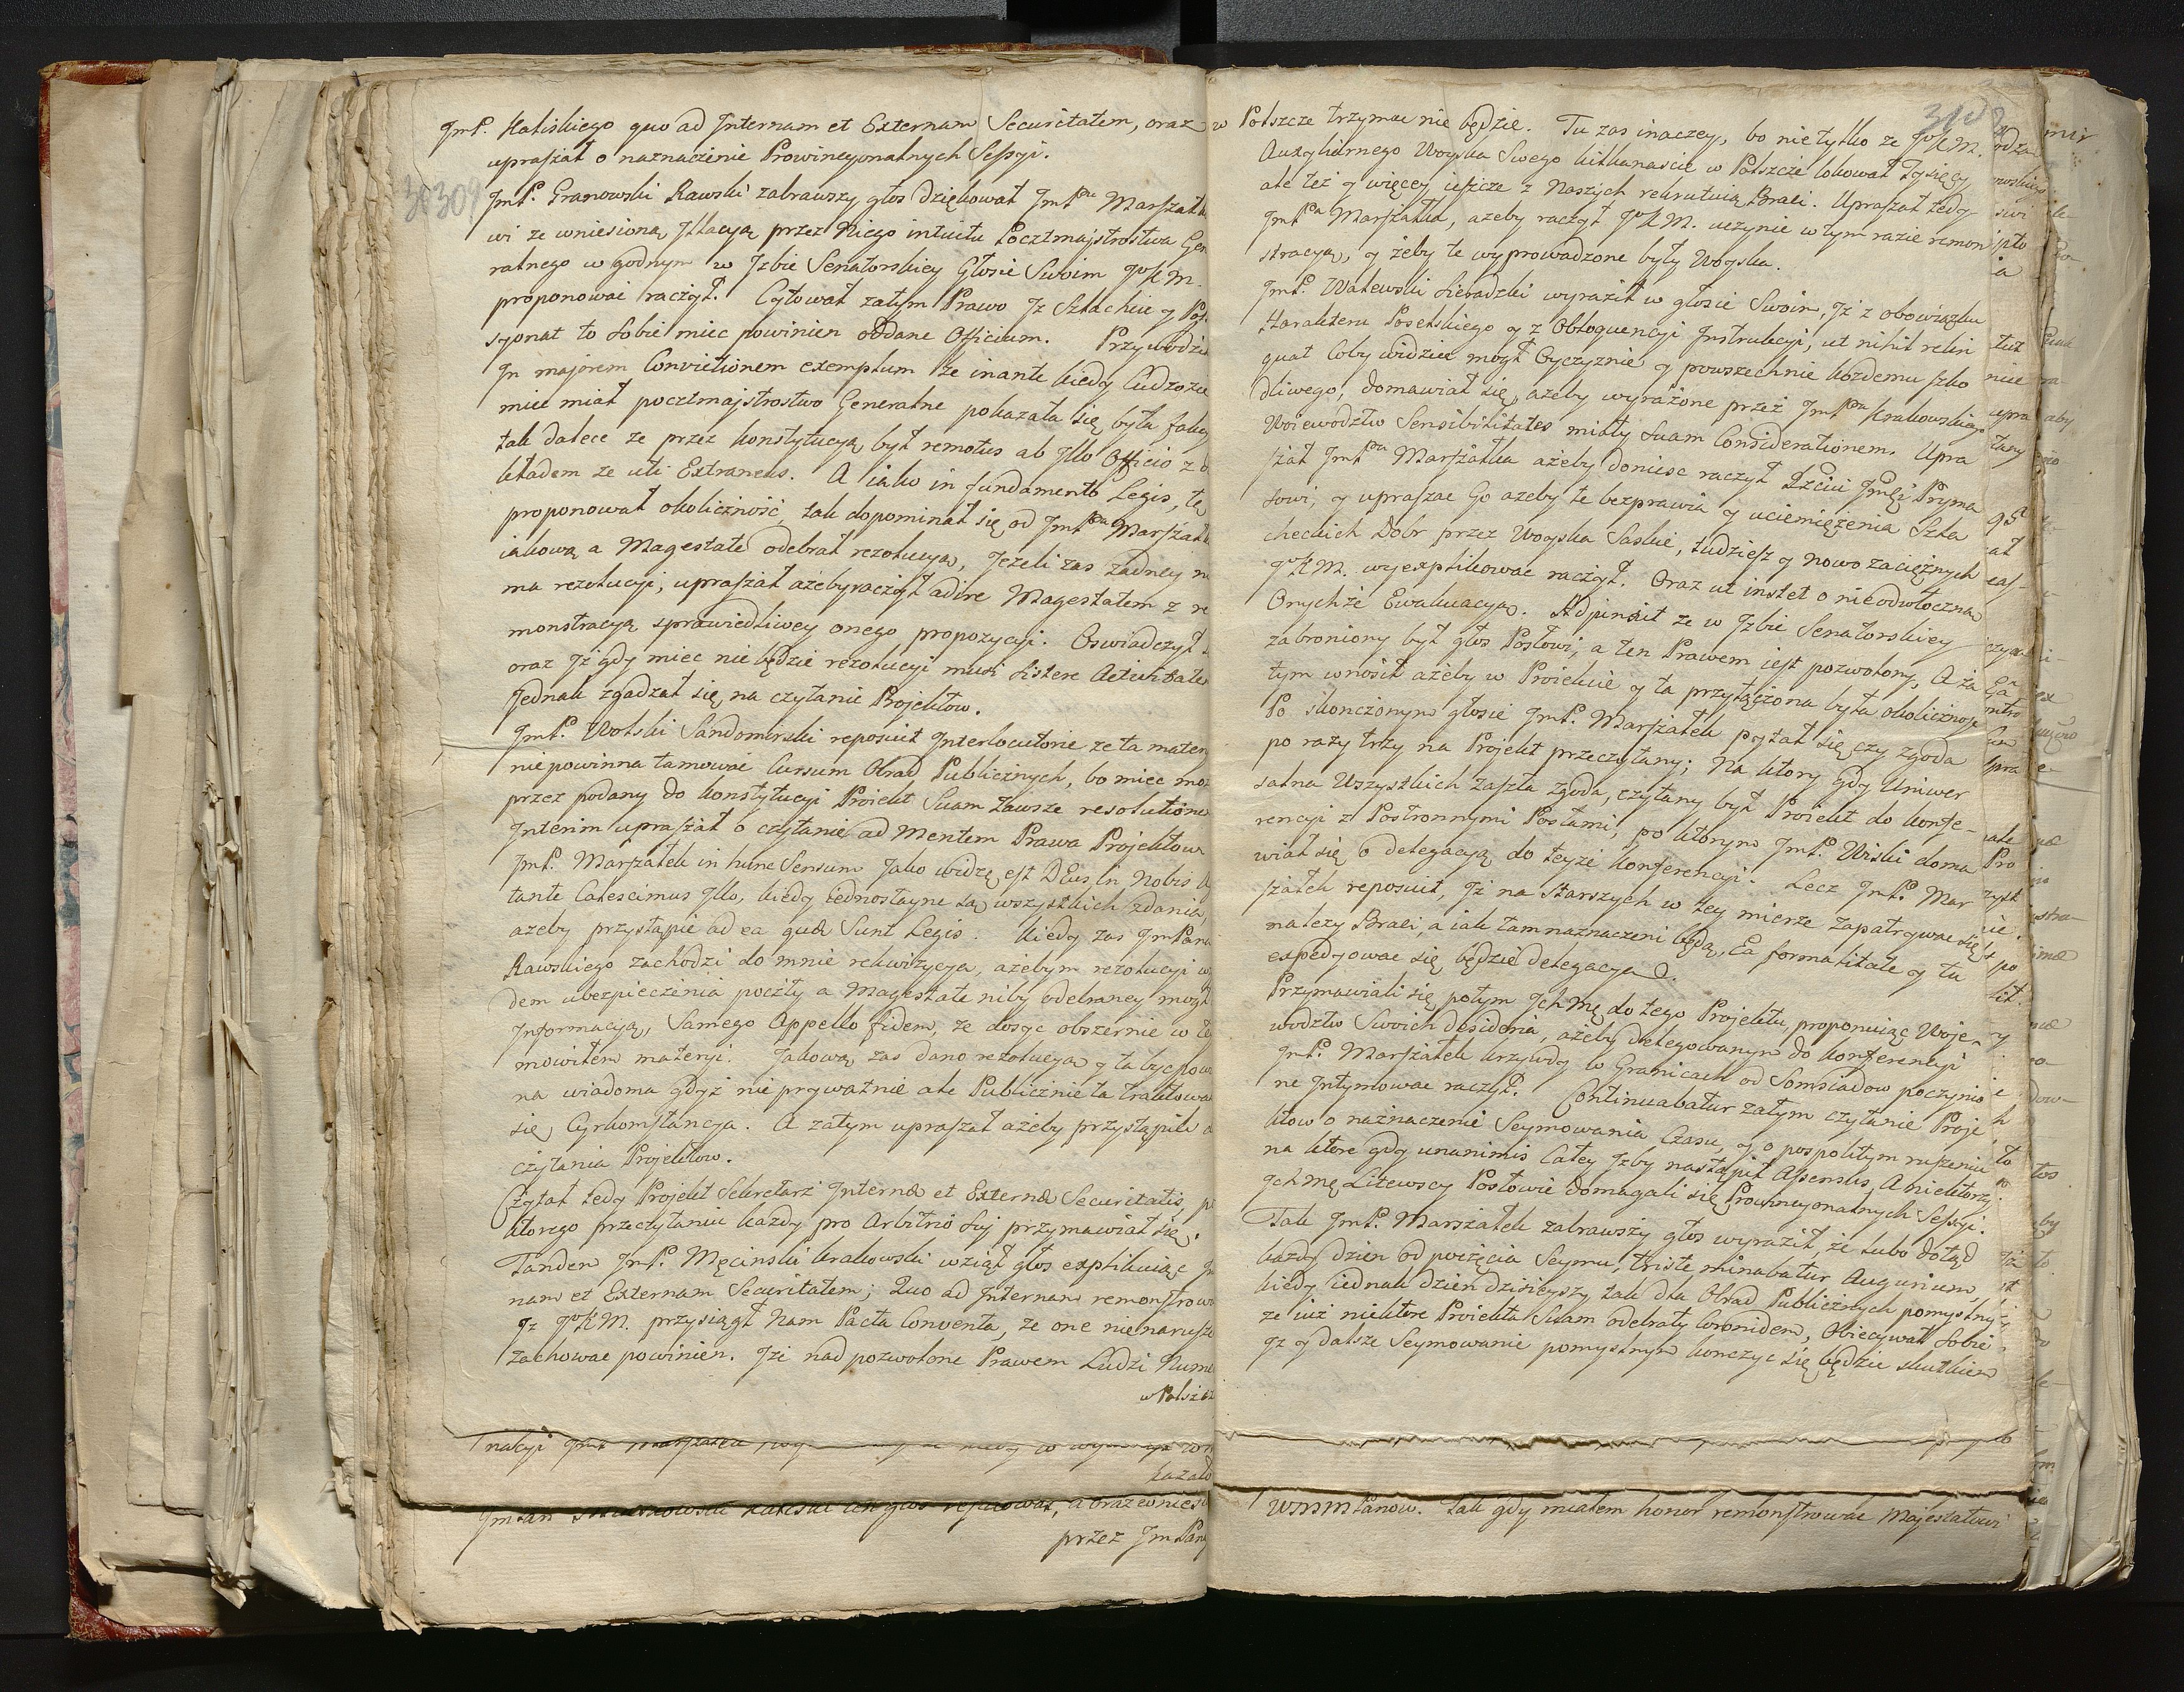 JmP. Kaliskiego quo ad Internam et Externam Securitatem, oraz
upraszał o naznaczenie Prowincyonalnych Sessyi.
309
JmP. Granowski Rawski zabrawszy głos dziękował JmPnu Marszałk
wi ze wniesioną Illacyą przez Niego intuitu Pocztmajstrostwa Gen
ralnego w godnym w Izbie Senatorskiey Głosie Swoim JoKM.
proponować raczył. Cytował zatym Prawo Iż Szlachcic y Pos
syonat to sobie miec powinien oddane Officium. Przywodził
In majorem Convictionem exemplum że inante kiedy Cudzozie
miec miał pocztmajstrostwo Generalne pokazała się była
tak dalece ze przez konstytucyą był remotus ab Illo Officio z
kładem ze uti Extraneus. A iako in fundamento Legis, tę
proponował okoliczność, tak dopominał się od JmPna Marszałk
iakową a Magestate odebrał rezolucyą, Jeżeli zas żadney n
ma rezolucyi; upraszał ażeby raczył adire Magestatem z re
monstracyą sprawiedliwey onego propozycyi. Oswiadczył
oraz Iż gdy miec nie będzie rezolucyi musi sistere Activitatem
Jednak zgadzał się na czytanie Projektow.
JmP. Wolski Sandomirski reposuit Interlocutorie ze ta mater
niepowinna tamować Cursum Obrad Publicznych, bo miec mo
przez podany do konstytucyi Proiekt Suam zawsze resolutione
Interim upraszał o czytanie ad Mentem Prawa Projektow
JmP. Marszałek in hunc Sensum Jako widzę est DEus in Nobis A
tante Calescimus Illo, kiedy iednostayne są wszystkich zdania,
ażeby przystąpić ad ea quæ Sunt Legis. Kiedy zas JmPana
Rawskiego zachodzi do mnie rekwizycya, ażebym rezolucyi w
dem ubezpieczenia poczty a Magestate niby odebraney mogł
Informacyą, Samego Appello fidem, ze dosyc obszernie w te
mowiłem materyi. Jakową zas dano rezolucya y ta byc pow
na wiadoma gdyż nie prywatnie ale Publicznie ta traktowa
się Cyrkomstancya. A zatym upraszał ażeby przystąpili
czytania Projektow.
Czytał tedy Projekt Sekretarz Internæ et Externæ Securitatis, p
ktorego przeczytaniu każdy pro Arbitrio Suj przymawiał się.
Tandem JmP. Męcinski krakowski wziął głos explikuiąc
nam et Externam Securitatem; Quo ad Internam remonstrowa
Iż JoKM. przysiągł Nam Pacta Conventa, ze one nienarusze
zachowac powinien. Iże nad pozwolone Prawem Ludzi Nume
w Polszcz
nakyi
kazał
głos
a oraz wnies
przez JmPan
310
w Polszcze trzymac nie będzie. Tu zas inaczey, bo nie tylko ze JoKM.
Auxyliarnego Woyska Swego kilkanascie w Polszcze lokował Tysięcy
ale też y więcey ieszcze z Naszych rekrutuią Braci. Upraszał tedy
JmPna Marszałka, ażeby raczył JoKM. uczynic w tym razie remon
stracyą, y żeby te wyprowadzone były Woyska.
JmP. Walewski Sieradzki wyraził w głosie Swoim, Iż z obowiązku
Harakteru Poselskiego y z Obloquencyi Instrukcyi, ut nihil relin
quat Coby widziec mogł Oyczyznie y powszechnie każdemu szko
dliwego, domawiał się, ażeby wyrażone przez JmPna krakowskiego
Woiewodztwo Sensibilitates miały Suam Considerationem. Upra
szał JmPna Marszałka ażeby doniesc raczył Xżciu Jmści Pryma
sowi, y upraszac Go ażeby te bezprawia y uciemiężenia Szla
checkich Dobr przez Woyska Saskie, tudziesz y nowo zaciężnych
JoKM. wyexplikowac raczył. Oraz ut instet o nieodwłoczna
Onychże Ewakuacya. Adjunxit ze w Izbie Senatorskiey
zabroniony był głos Posłowi, a ten Prawem iest pozwolony, A za
tym wnosił ażeby w Proiekcie y ta przyłączona była okoliczność
Po skonczonym głosie JmP. Marszałek pytał się czy zgoda
po razy trzy na Projekt przeczytany; Na ktory gdy Uniwer
salna Wszystkich zaszła zgoda, czytany był Proiekt do konfe-
rencyi z Postronnymi Posłami, po ktorym JmP. Wiski doma
wiał się o delegacyą do teyże konferencyi. Lecz JmP. Mar
szałek reposuit, Iż na Starszych w tey mierze zapatrywac się
należy Braci, a iak tam naznaczeni będą, Ea formalitate y tu
expedyowac się będzie delegacya.
Przymawiali się potym Ich Mę do tego Projektu, proponuiąc Woje-
wodztw Swoich desideria, ażeby delegowanym do konferencyi
JmP. Marszałek krzywdy w Granicach od Somsiadow poczynio
ne Intymowac raczył. Continuabatur zatym czytanie Proje
ktow o naznaczenie Seymowania Czasu, y o pospolitym ruszeniu
na ktore gdy unanimis Całey Izby nastąpił Assensus, A niektorzy
Ich Mę Litewscy Posłowie domagali się Prowincyonalnych Sessyi.
Tak JmP. Marszałek zabrawszy głos wyraził, że lubo dotąd
każdy dzien od poczęcia Seymu, triste minabatur Augurium,
kiedy iednak dzien dzisieyszy tak dla Obrad Publicznych pomyslny
ze iuż niektore Proiekta Suam odebrały Coronidem, Obiecywał Sobie
Iż y dalsze Seymowanie pomyslnym konczyc się będzie skutkiem
WmmmPanow. Tak gdy miałem honor remonstrowac Majestatowi